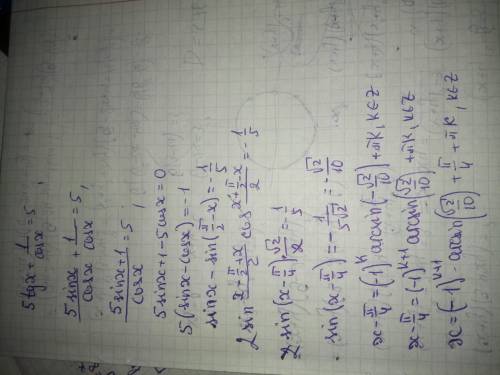 5tgx + 1/cosx = 5,
5sinx/cosx + 1/cosx = 5,
(5sinx+1)/cosx = 5,
5sinx+1-5cosx=0
5(sinx-cosx)=-1
sinx - sin(π/2 - x) = -1/5
2 sin (x - π/2 + x)/2 cos (x + π/2 - x)/2 = -1/5
2 sin(x - π/4) √2/2 = -1/5
sin(x - π/4) = -1/(5√2) = -√2/10
x - π/4 = (-1)^k arcsin(-√2/10) + πk, k∈Z
x - π/4 = (-1)^(k+1) arcsin(√2/10) + πk, k∈Z
x = (-1)^(k+1) · arcsin(√2/10) + π/4 + πk, k∈Z